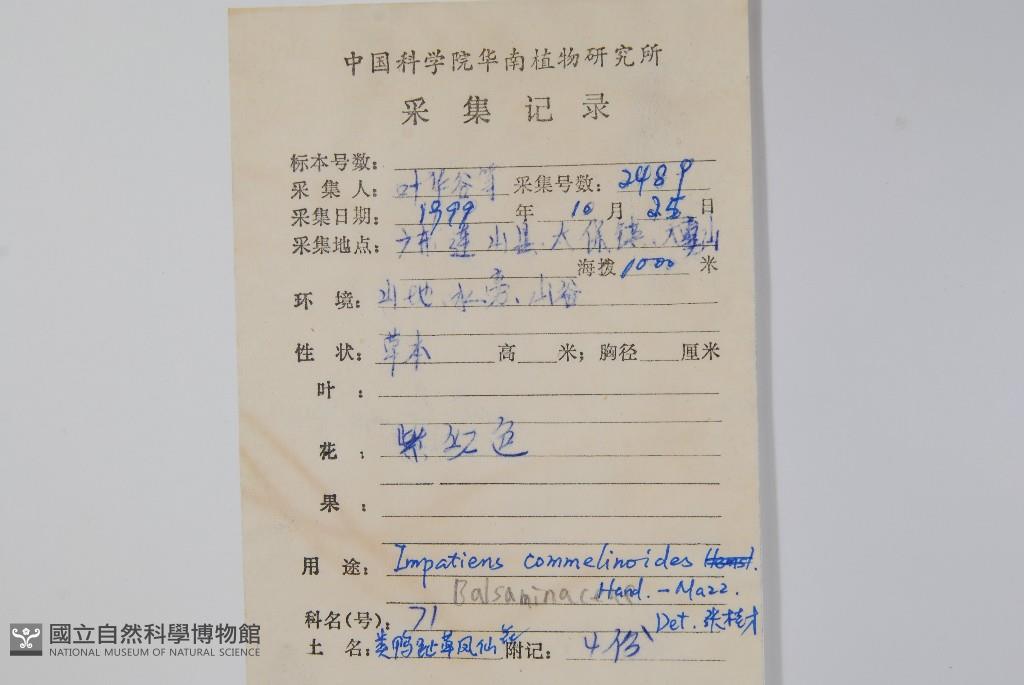 中国科学院华南植物研究所
采集记录
标本号数:
采集人: 叶华谷等 采集号数: 2489
采集日期: 1999 年 10 月 25 日
采集地点: 广东 连山县、大保镇、大雾山
海拨 1000 米
环境: 山地、水旁、山谷
性状: 草本 高 米; 胸径 厘米
叶:
花: 紫红色
果:
用途: Impatiens commelinoides Hand. - Mazz.
Balsaminaceae
科名(号): 71 Det. 张桂才
土名: 类鸭趾草凤仙花 附记: 4份
國立自然科學博物館
NATIONAL MUSEUM OF NATURAL SCIENCE